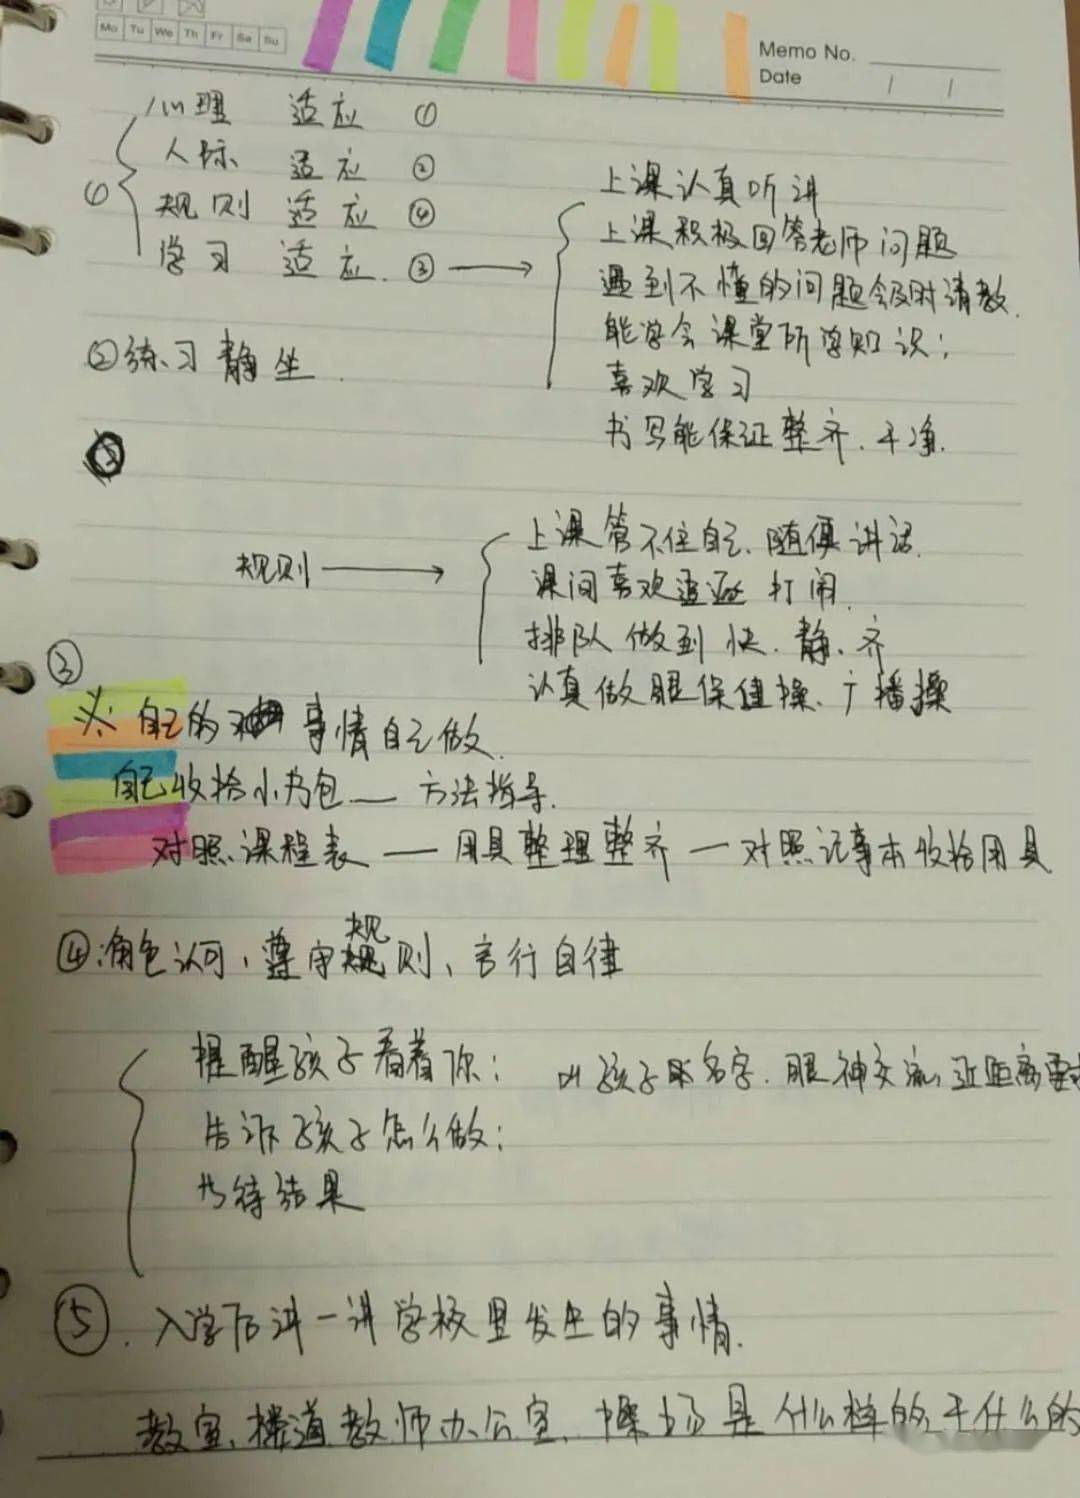 Mo Tu We Th Fr Sa Su
Memo No.
Date / /
① 心理 适应 ①
人际 适应 ②
规则 适应 ④
学习 适应. ③ →
上课认真听讲
上课积极回答老师问题
遇到不懂的问题会及时请教.
能学会课堂所学知识;
喜欢学习
书写能保证整齐.干净.
②练习静坐.
规则 →
上课管不住自己.随便讲话.
课间喜欢追逐打闹.
排队做到快.静.齐
认真做眼保健操.广播操
③
※ 自己的 事情自己做.
自己收拾小书包 — 方法指导.
对照课程表 — 用具整理整齐 — 对照记事本收拾用具
④:角色认可,遵守规则、言行自律
提醒孩子看着你: 叫孩子的名字.眼神交流,近距离要求
告诉孩子怎么做;
等待结果
⑤.入学后讲一讲学校里发生的事情.
教室、楼道教师办公室、操场是什么样的、干什么的